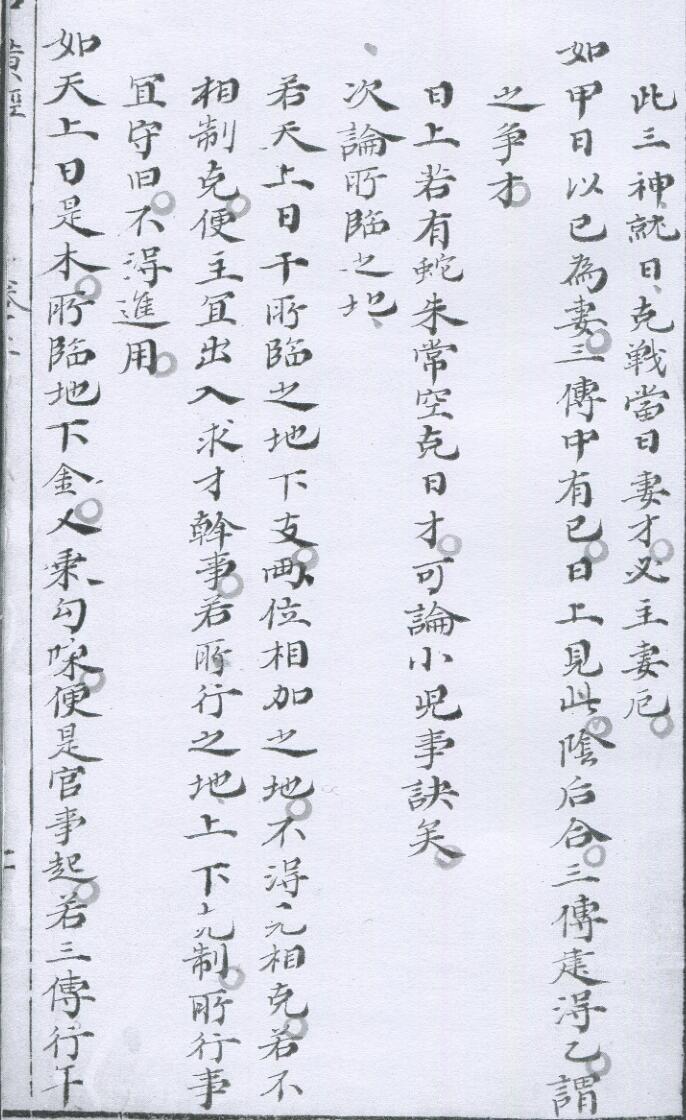 此三神就日克戦當日妻才必主妻厄
如甲日以己為妻三傳中有己日上見此陰后合三傳建得乙謂
之争才
日上若有蛇朱常空克日才可論小児事訣矣
次論所臨之地
若天上日干所臨之地下支両位相加之地不得元相克若不
相制克便主宜出入求才幹事若所行之地上下克制所行事
宜守旧不得進用
如天上日是木所臨地下金人乗勾
便是官事起若三傳行年
黄經